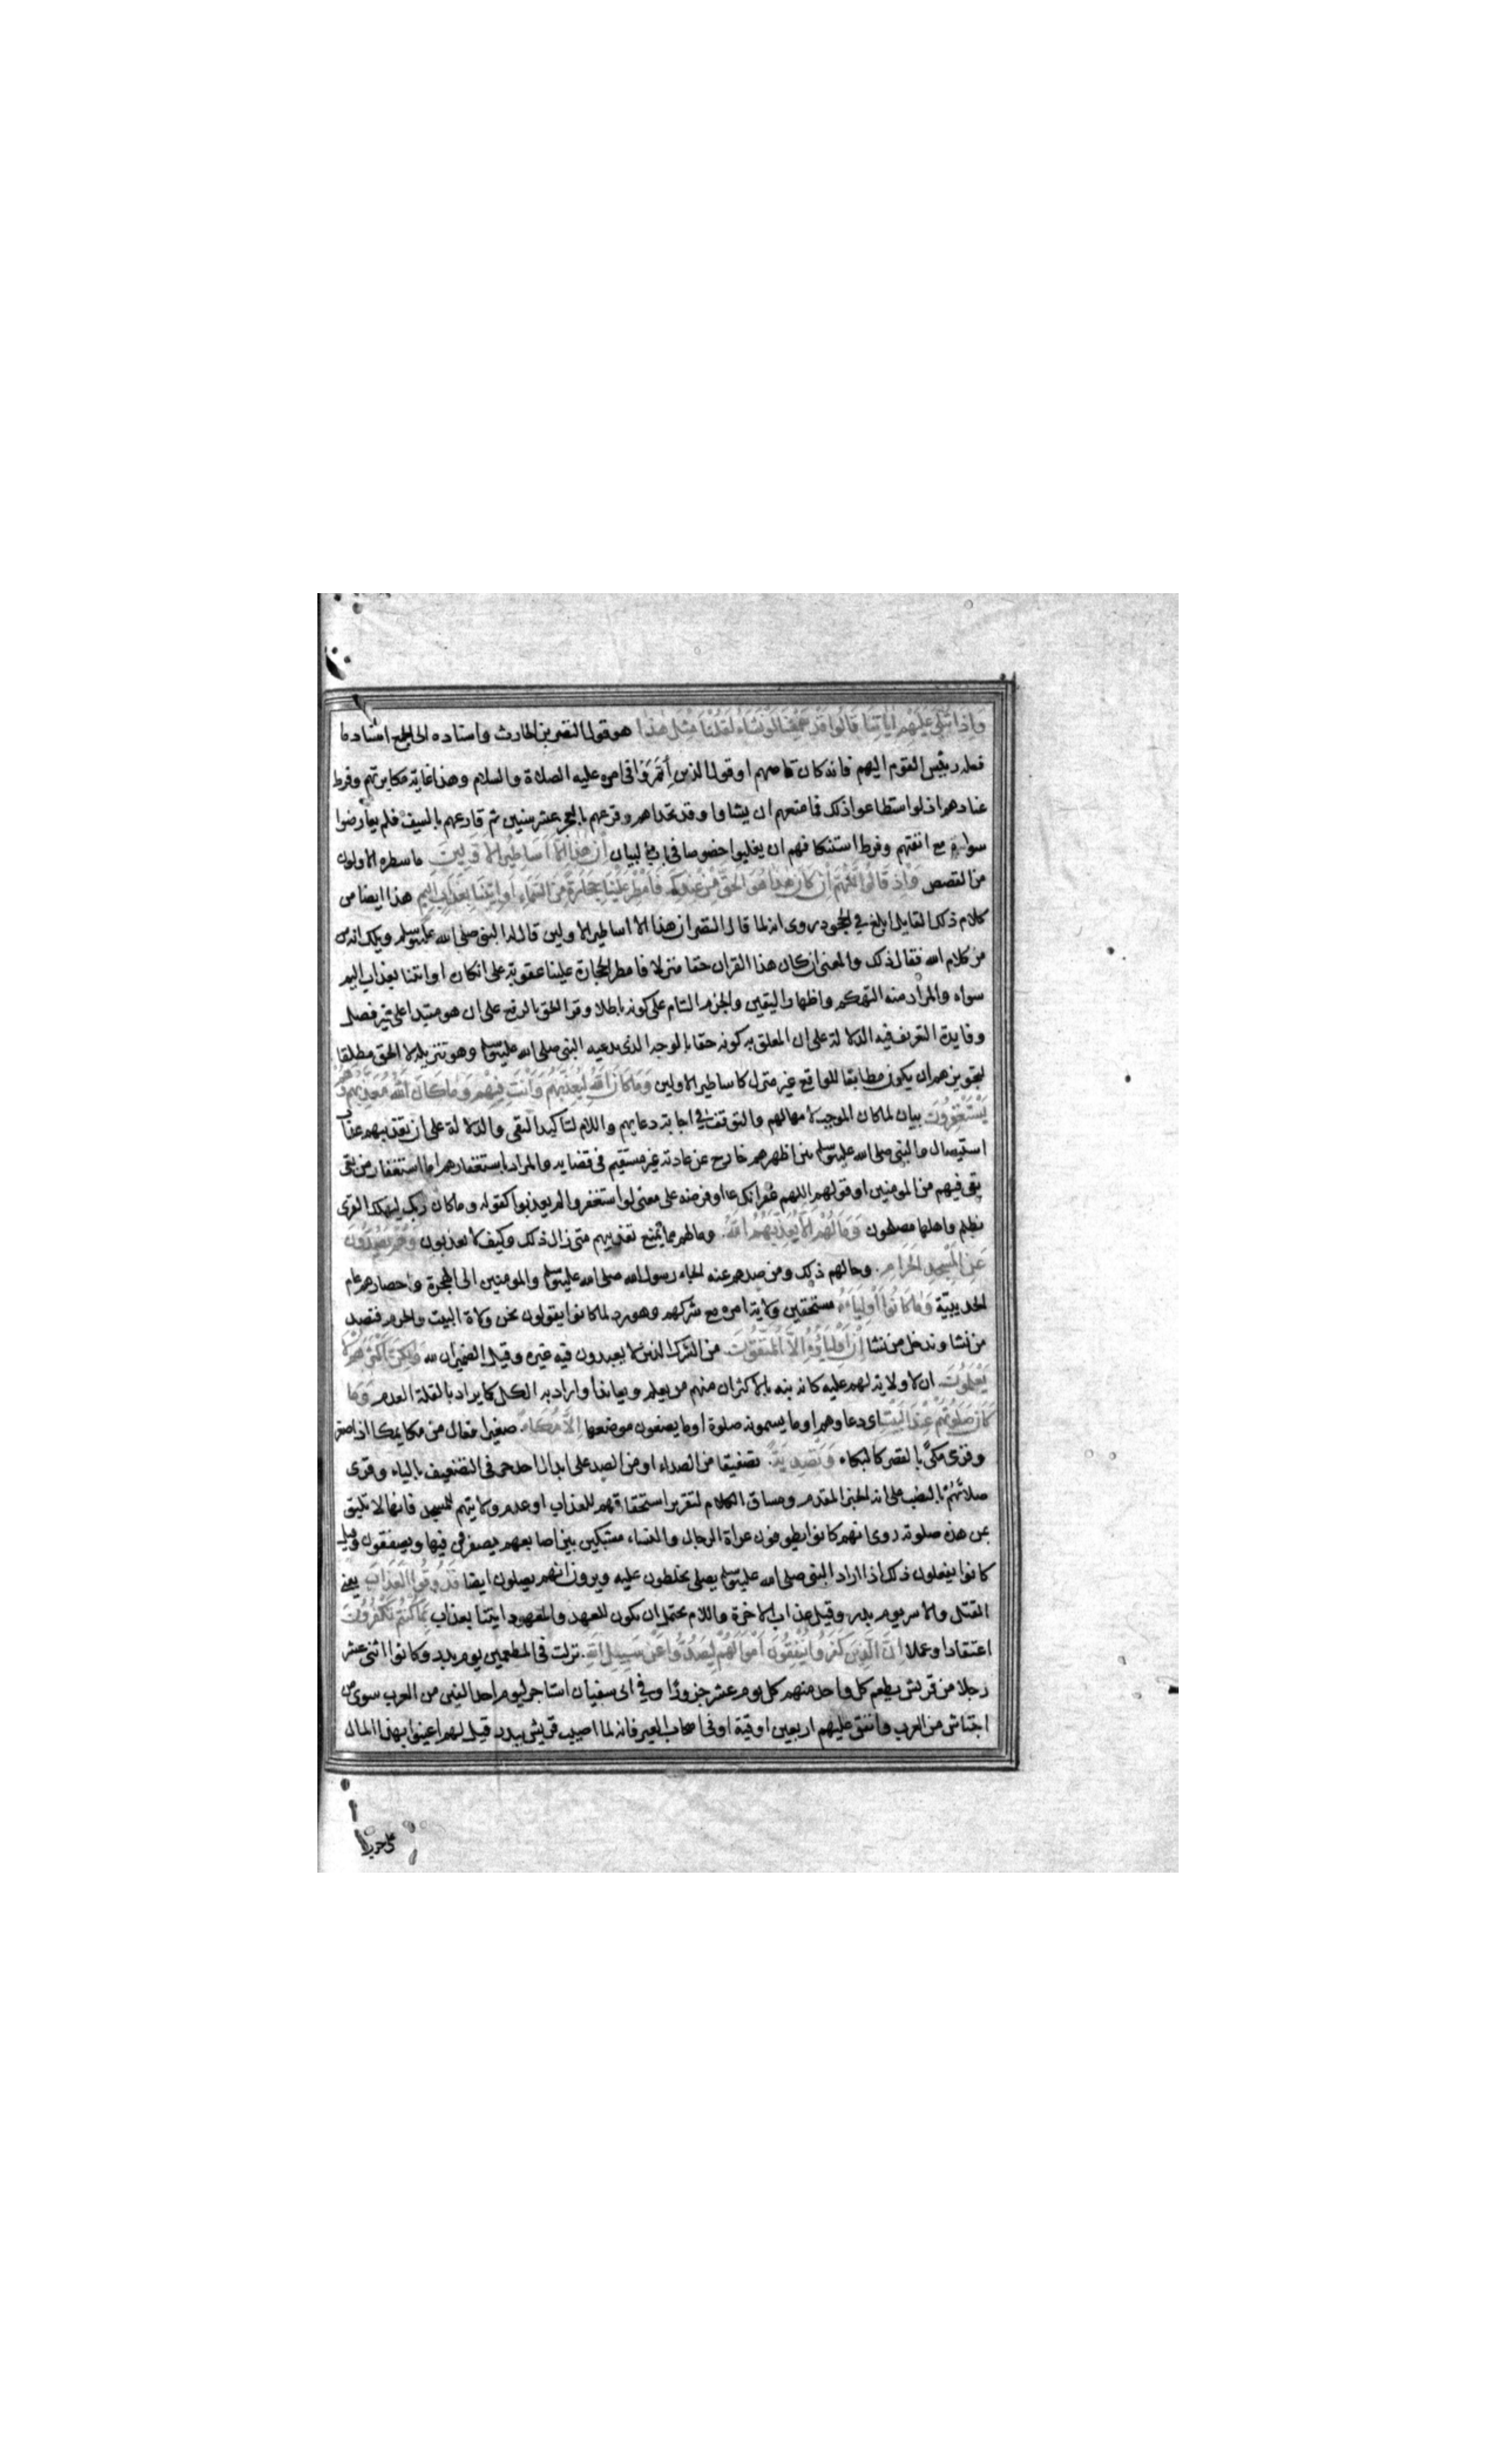 واذا تتلى عليهم اياتنا قالوا قد سمعنا لو نشاء لقلنا مثل هذا هو قول النضر بن الحارث واسناده الى الجمع اسناد ما
فعله رئيس القوم اليهم فانه كان قاصهم او قول الذين ائتمروا فى امره عليه الصلاة والسلام وهذا غاية مكابرتهم وفرط
عنادهم اذ لو استطاعوا ذلك فما منعهم ان يشاوا وقد تحداهم وقرعهم بالعجز عشر سنين ثم قارعهم بالسيف فلم يعارضوا
سواه مع انفتهم وفرط استنكافهم ان يغلبوا خصوصا فى باب البيان ان هذا الا اساطير الاولين ما سطره الاولون
من القصص واذ قالوا اللهم ان كان هذا هو الحق من عندك فامطر علينا حجارة من السماء او ائتنا بعذاب اليم هذا ايضا من
كلام ذلك القايل ابلغ في الجحود روى انه لما قال النضر ان هذا الا اساطير الاولين قال له النبى صلى الله عليه وسلم ويلك انه من
من كلام الله فقال ذلك والمعنى ان كان هذا القران حقا منزلا فامطر الحجارة علينا عقوبة على انكان او ائتنا بعذاب اليم
سواه والمراد منه التهكم واظهار اليقين والجزم التام على كونه باطلا وقرا الحق بالرفع على ان هو مبتدا على غير فصل
وفايدة التعريف فيه الدلالة على ان المعلق به كونه حقا بالوجه الذى يدعيه النبى صلى الله عليه وسلم وهو تنزيله لا الحق مطلقا
لتجويزهم ان يكون مطابقا للواقع غير منزل كاساطير الاولين وما كان الله ليعذبهم وانت فيهم وما كان الله معذبهم وهم
يستغفرون بيان لما كان الموجب لامهالهم والتوقف في اجابة دعايهم واللام لتاكيد النفى والدلالة على ان تعذيبهم عذاب
استيصال والنبى صلى الله عليه وسلم بين اظهرهم خارج عن عادته غير مستقيم فى قضايه والمراد باستغفارهم اما استغفار من بقى
بقى فيهم من المومنين او قولهم اللهم غفرانك او فرضه على معنى لو استغفروا لم يعذبوا كقوله وما كان ربك ليهلك القرى
بظلم واهلها مصلحون وما لهم الا يعذبهم الله. وما لهم مما يمنع تعذيبهم متى زال ذلك وكيف لا يعذبون وهم يصدون
عن المسجد الحرام. وحالهم ذلك ومن صدهم عنه الجاء رسول الله صلى الله عليه وسلم والمومنين الى الهجرة واحصارهم عام
الحديبية وما كانوا اولياءه مستحقين ولاية امره مع شركهم وهو رد لما كانوا يقولون نحن ولاة البيت والحرم فنصد
من نشا وندخل من نشا ان اولياؤه الا المتقون. من الشرك الذين لا يعبدون فيه غيره وقيل الضميران لله ولكن اكثرهم لا
يعلمون. ان لا ولاية لهم عليه كانه نبه بالاكثر ان منهم من يعلم ويعاند او اراد به الكل كما يراد بالقلة العدم وما
كان صلوتهم عند البيت اى دعاوهم او ما يسمونه صلوة او ما يضعون موضعها الا مكاء. صفيرا فعال من مكا يمكا اذا صفر
وقرى مكى بالقصر كالبكاء وتصدية. تصفيقا من الصداء او من الصد على ابدال احد حرفى التضعيف بالياء وقرى
صلاتهم بالنصب على انه الخبر المقدم ومساق الكلام لتقرير استحقاقهم للعذاب او عدم ولايتهم للمسجد فانها لا تليق
بمن هذه صلوته روى انهم كانوا يطوفون عراة الرجال والنساء مشبكين بين اصابعهم يصفرون فيها ويصفقون وقيل
كانوا يفعلون ذلك اذا اراد النبى صلى الله عليه وسلم يصلى يخلطون عليه ويرون انهم يصلون ايضا فذوقوا العذاب يعنى
القتل والاسر يوم بدر وقيل عذاب الاخرة واللام يحتمل ان يكون للعهد والمعهود ايتنا بعذاب بما كنتم تكفرون
اعتقادا وعملا ان الذين كفروا ينفقون اموالهم ليصدوا عن سبيل الله. نزلت فى المطعمين يوم بدر وكانوا اثنى عشر
رجلا من قريش يطعم كل واحد منهم كل يوم عشر جزورا او في ابى سفيان استاجر ليوم احد الفين من العرب سوى من
اجتاش من العرب وانفق عليهم اربعين اوقية او فى اصحاب العير فانه لما اصيب قريش ببدر قيل لهم اعينوا بهذا المال